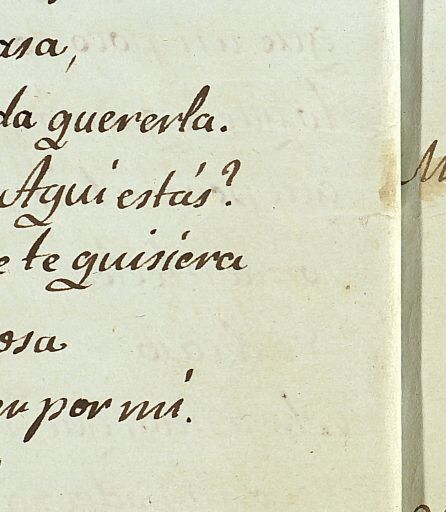 asa,
da quererla.
Aqui estás?
e te quisiera
osa
por mi.